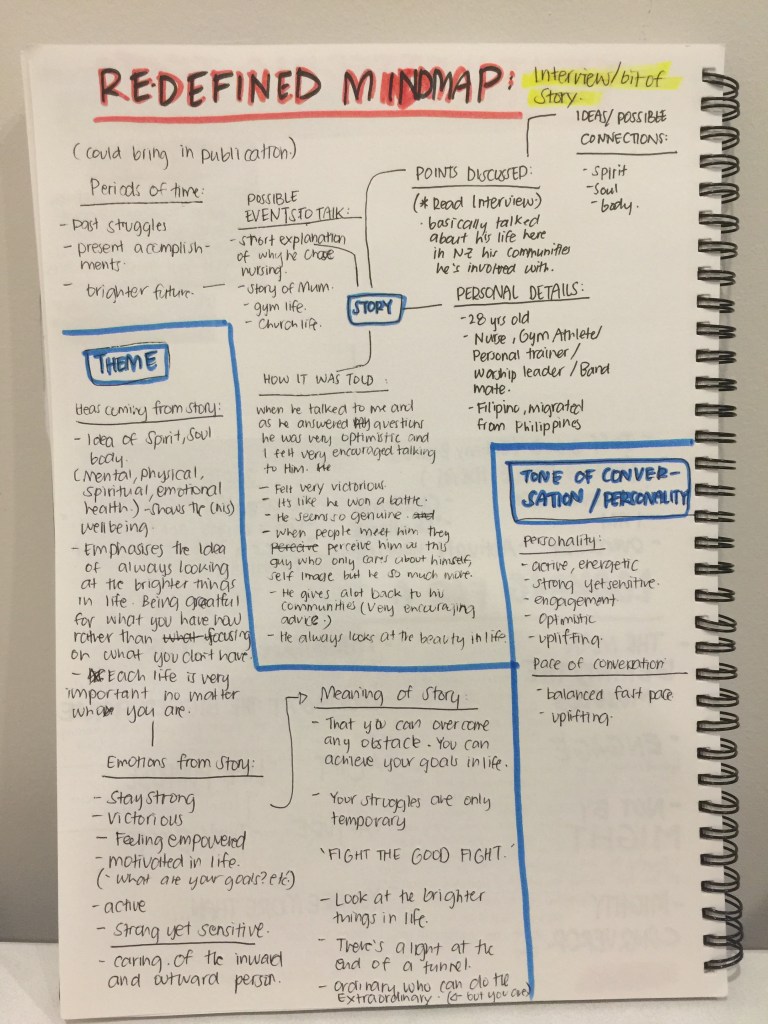 RE·DEFINED MINDMAP:
Interview/bit of
Story.
(could bring in publication.)
Periods of time:
- Past struggles
- present acomplish-
ments.
- brighter future.
POSSIBLE
EVENTS TO TALK:
- short explanation
of why he chose
nursing.
- story of Mum.
- gym life.
- Church life.
POINTS DISCUSSED:
(* Read Interview.)
· basically talked
about his life here
in NZ his communities
he's involved with.
IDEAS/POSSIBLE
CONNECTIONS:
- Spirit
- Soul
- body.
STORY
PERSONAL DETAILS:
- 28 yrs old
- Nurse, Gym Athlete/
Personal trainer/
Worship leader/Band
mate.
- Filipino, migrated
from Philippines
HOW IT WAS TOLD:
when he talked to me and
as he answered questions
he was very optimistic and
I felt very encouraged talking
to Him. He
- Felt very victorious.
- It's like he won a battle.
- He seems so genuine. and
- when people meet him they
perceive perceive him as this
guy who only cares about himself,
self image but he so much more.
- He gives alot back to his
communities (Very encouraging
advice.)
- He always looks at the beauty in life.
THEME
Ideas coming from story:
- Idea of Spirit, Soul
body.
(Mental, Physical,
Spiritual, emotional
health.) - shows the (his)
wellbeing.
- Emphasises the idea
of always looking
at the brighter things
in life. Being greatful
for what you have now
rather than what focusing
on what you don't have.
- Each life is very
important no matter
who you are.
Emotions from story:
- Stay strong
- Victorious
- Feeling empowered
- motivated in life.
(- What are your goals? etc.)
- active
- Strong yet sensitive.
- caring. of the inward
and outward person.
Meaning of Story:
- That you can overcome
any obstacle. You can
achieve your goals in life.
- Your struggles are only
temporary
'FIGHT THE GOOD FIGHT.'
- Look at the brighter
things in life.
- There's a light at the
end of a tunnel.
- ordinary who can do the
Extraordinary. (← but you are)
TONE OF CONVER-
SATION/PERSONALITY
Personality:
- active, energetic
- strong yet sensitive.
- engagement
- Optimistic
- uplifting.
Pace of conversation
- balanced fast pace
- uplifting.